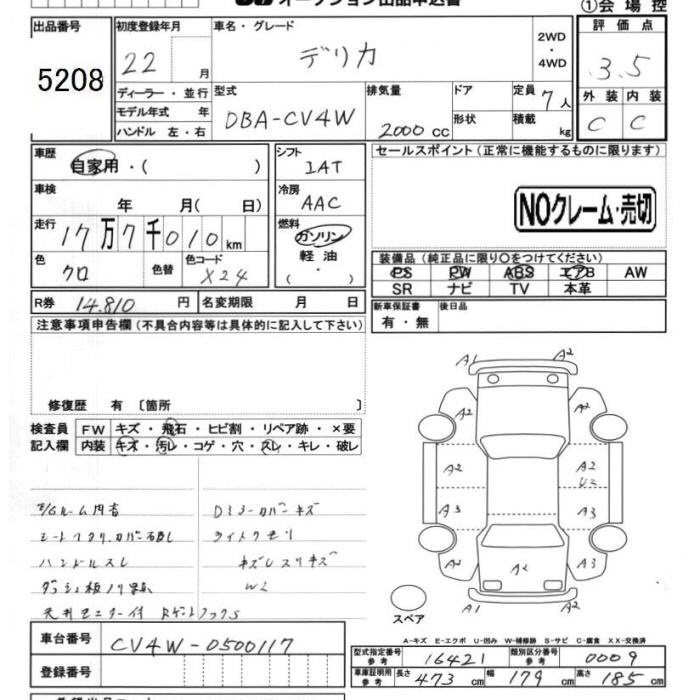 ①会場控
出品番号
5208
初度登録年月
22 月
ディーラー・並行
モデル年式 年
ハンドル 左・右
車名・グレード
デリカ
2WD
・
4WD
型式
DBA-CV4W
排気量
2000 cc
ドア
形状
定員 7人
積載 kg
評価点
3.5
外装 内装
C C
車歴
自家用・( )
車検
年 月( 日)
走行
17万7千010km
色
クロ
色替
色コード
X24
シフト
IAT
冷房
AAC
燃料
ガソリン
軽油
・
( )
R券 14.810 円
名変期限 月 日
セールスポイント(正常に機能するものに限ります)
NOクレーム・売切
装備品(純正品に限り○をつけてください)
PS PW ABS エアB AW
SR ナビ TV 本革
新車保証書
有・無
後日品
注意事項申告欄(不具合内容等は具体的に記入して下さい)
修復歴 有 〔箇所 〕
検査員
記入欄
FW キズ・飛石・ヒビ割・リペア跡・×要
内装 キズ・汚レ・コゲ・穴・スレ・キレ・破レ
ハンドルスレ
ライトクモリ
W2
A1 A2
A2 A2
A2 A2
U2
A3 A3
A2 A3
A2
A1 A2
スペア
A-キズ E-エクボ U-凹み W-補修跡 S-サビ C-腐食 XX-交換済
車台番号
CV4W-0500117
登録番号
型式指定番号
参考
16421
類別区分番号
参考
0009
車庫証明用
参考
長さ 473 cm
幅 179 cm
高さ 185 cm